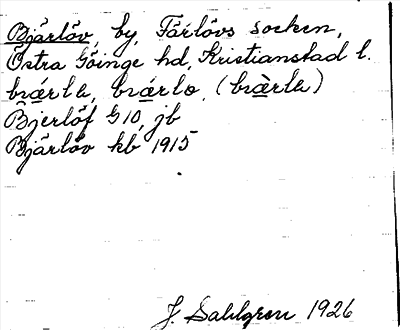 Bjärlöv, by, Färlövs socken,
Östra Göinge hd, Kristianstad l.
bræ̀rla, bræ̀rlo, (bræ̀rla)
Bjerlöf G10, jb
Bjärlöv kb 1915
J. Sahlgren 1926